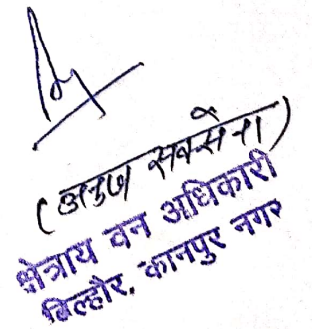 (अनुज सक्सेना)
क्षेत्राय वन अधिकारी
बिल्हौर, कानपुर नगर